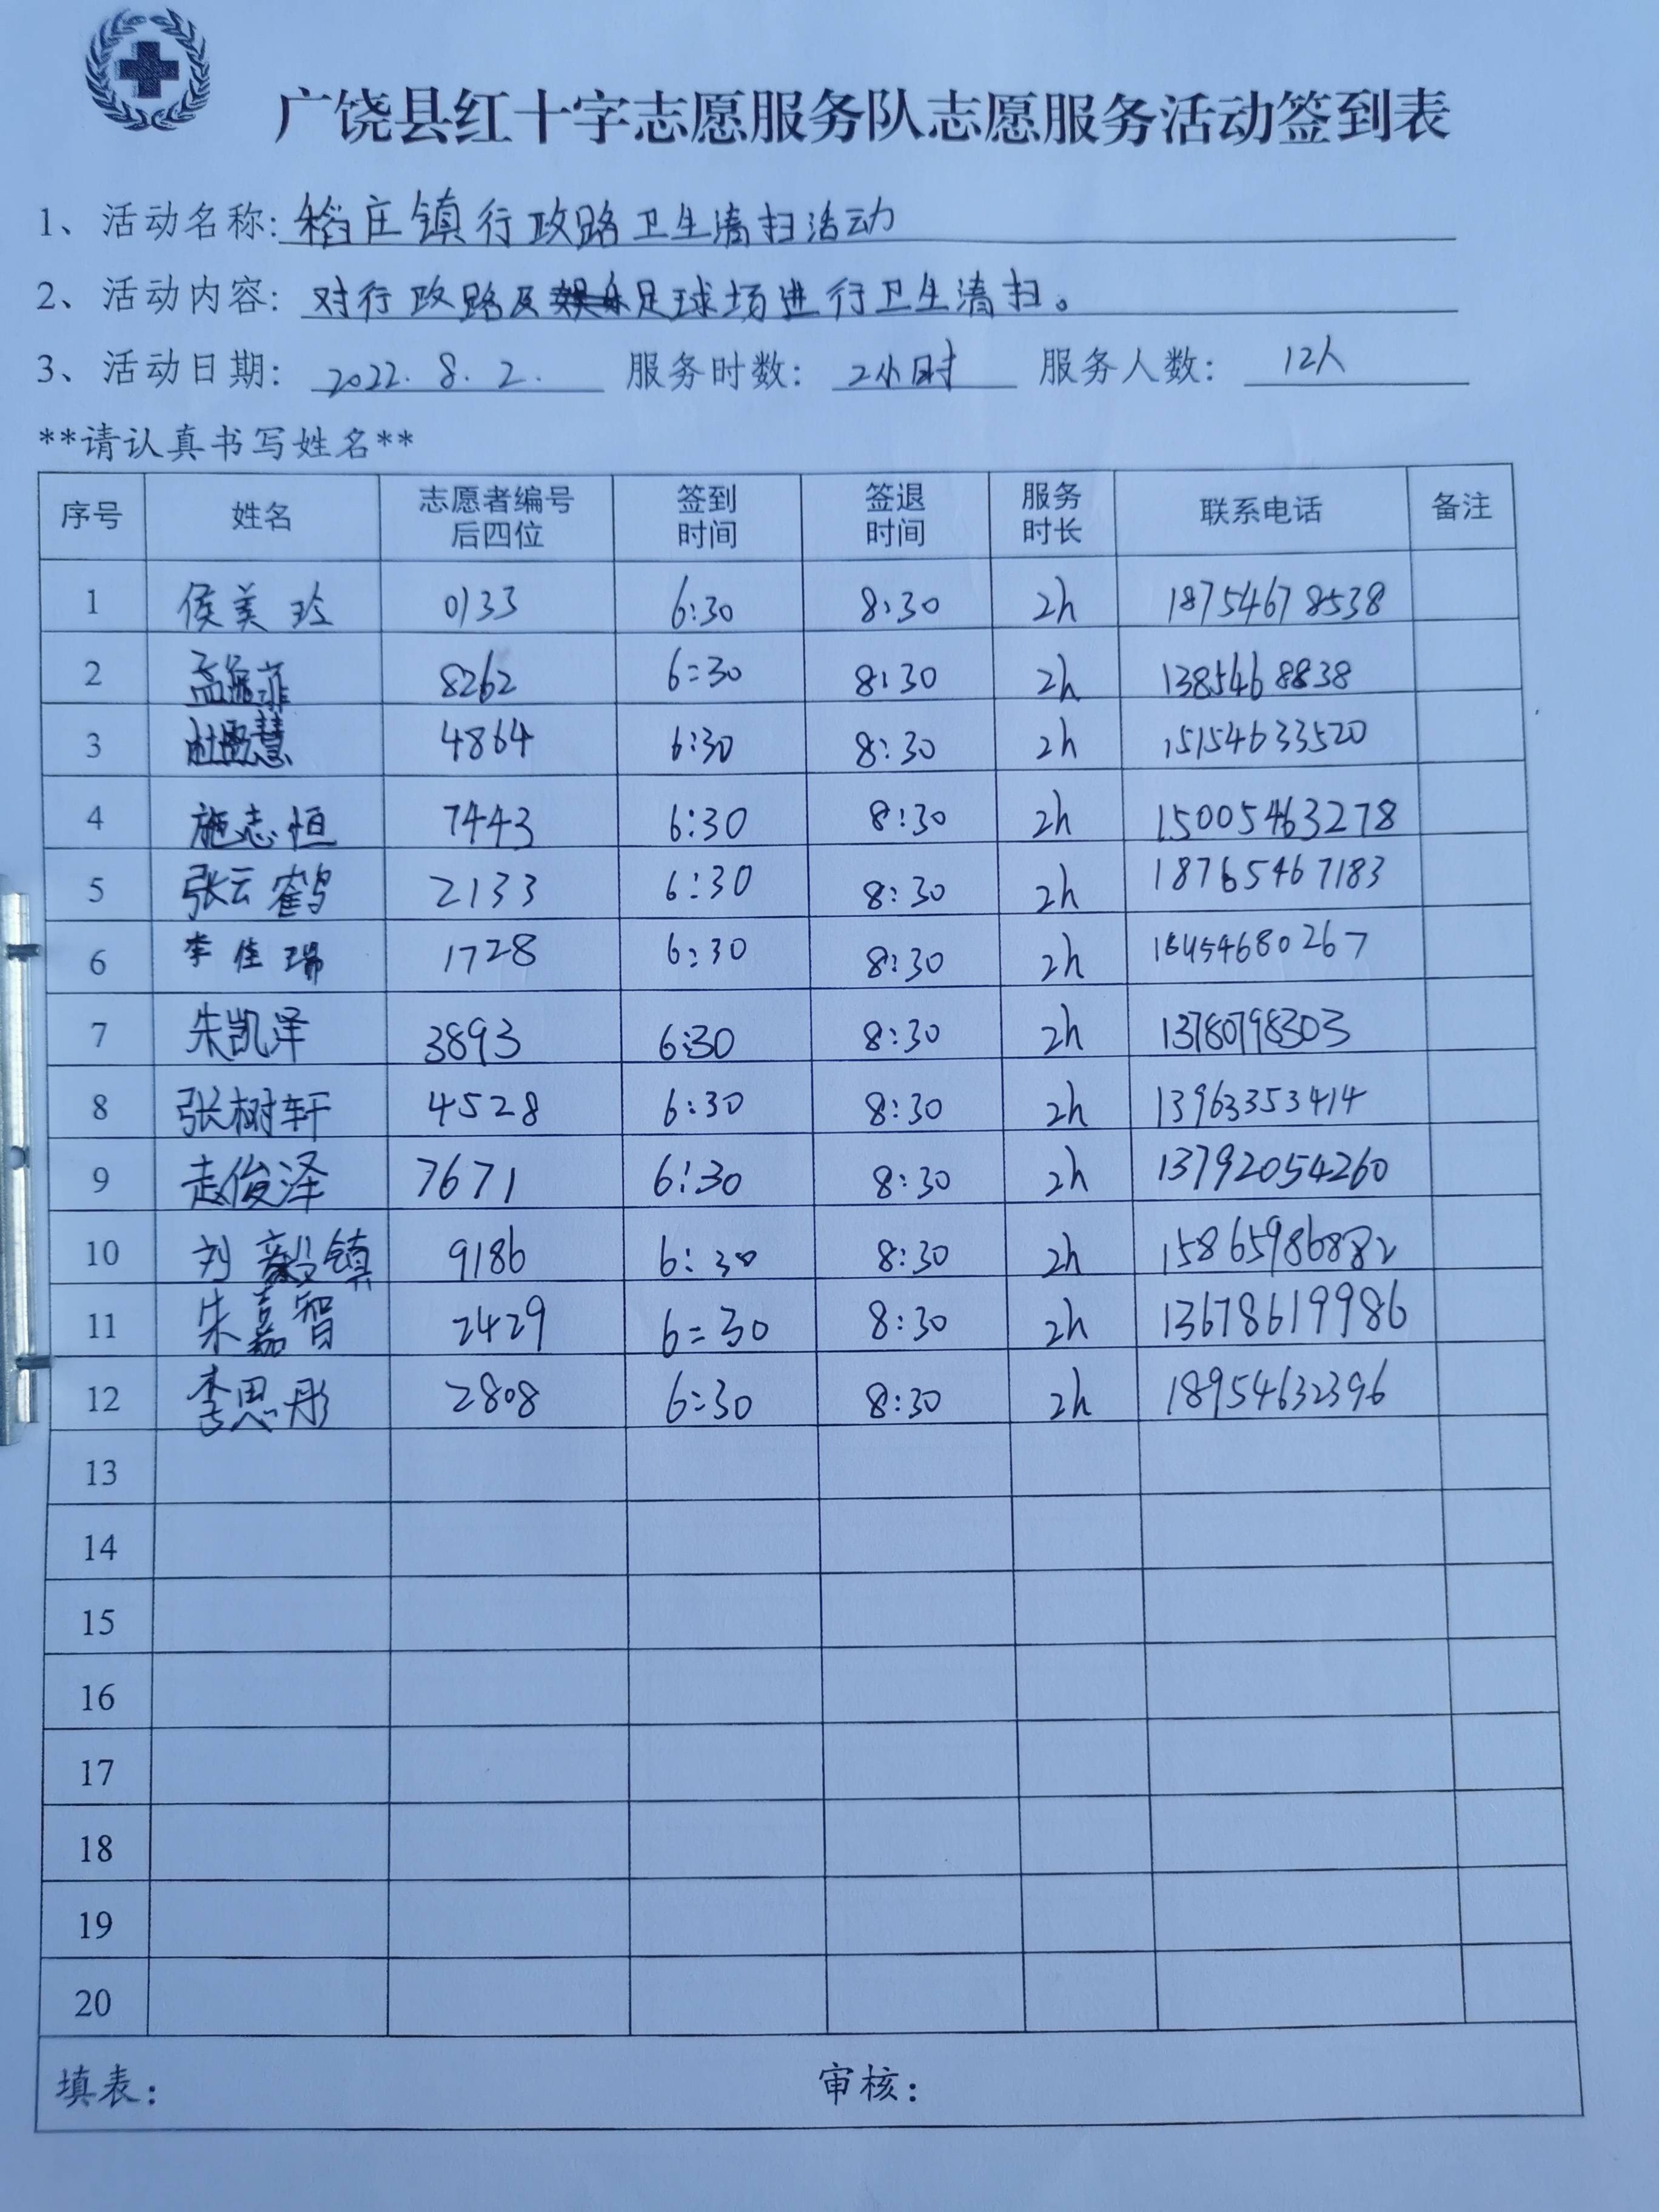 广饶县红十字志愿服务队志愿服务活动签到表
1、活动名称: 稻庄镇行政路卫生清扫活动
2、活动内容: 对行政路及足球场进行卫生清扫。
3、活动日期: 2022.8.2. 服务时数: 2小时 服务人数: 12人
**请认真书写姓名**
序号 姓名 志愿者编号后四位 签到时间 签退时间 服务时长 联系电话 备注
1 侯美玲 0133 6:30 8:30 2h 18754678538
2 8262 6:30 8:30 2h 1385468838
3 4864 6:30 8:30 2h 15154633520
4 施志恒 7443 6:30 8:30 2h 15005463278
5 张云鹤 2133 6:30 8:30 2h 18765467183
6 李佳瑞 1728 6:30 8:30 2h
7 朱凯泽 3893 6:30 8:30 2h 13780798303
8 张树轩 4528 6:30 8:30 2h 13963353414
9 赵俊泽 7671 6:30 8:30 2h 13792054260
10 刘毅镇 9186 6:30 8:30 2h 15865986882
11 朱嘉智 2429 6:30 8:30 2h 13678619986
12 李思彤 2808 6:30 8:30 2h 18954632396
13
14
15
16
17
18
19
20
填表: 审核: